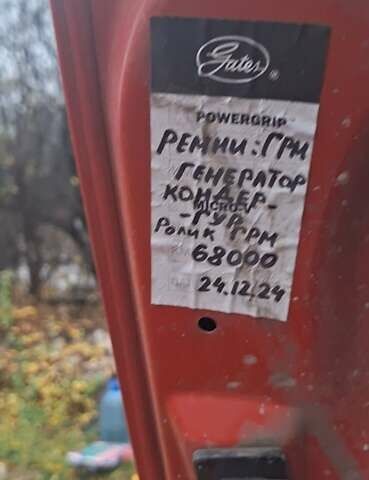 Gates®
POWERGRIP
РЕМНИ: ГРМ
ГЕНЕРАТОР
КОНДЕР-
MICRO-V
-ГУР
РОЛИК ГРМ
68000
24.12.24